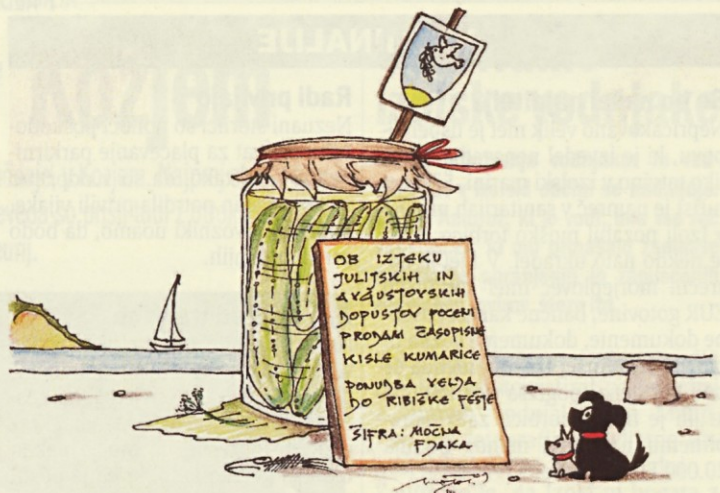 OB IZTEKU
JULIJSKIH IN
AVGUSTOVSKIH
DOPUSTOV POCENI
PRODAM ČASOPISNE
KISLE KUMARICE
PONUDBA VELJA
DO RIBIŠKE FEŠTE
ŠIFRA: MOČNA
FJAKA